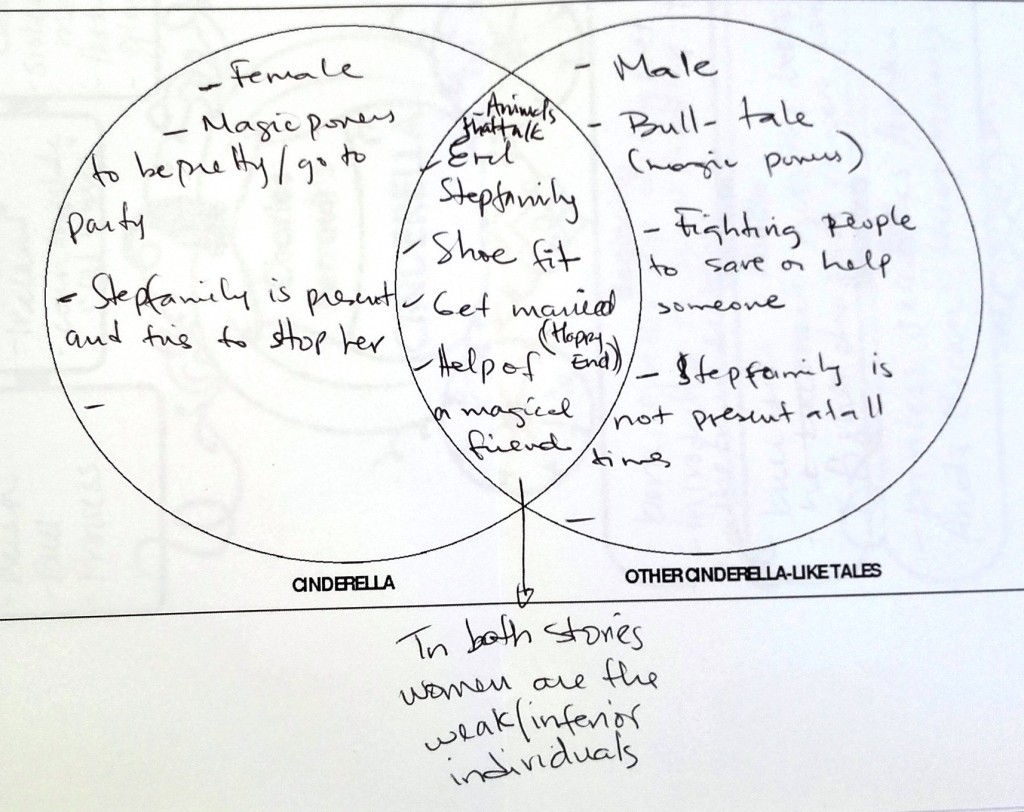 - Female
- Magic powers
to be pretty/go to
party
- Stepfamily is present
and tries to stop her
-
- Animals
that talk
- Evil
Stepfamily
- Shoe fit
- Get married
(Happy
End)
- Help of
a magical
friend
- Male
- Bull-tale
(magic powers)
- Fighting people
to save or help
someone
- Stepfamily is
not present at all
times
-
CINDERELLA
OTHER CINDERELLA-LIKE TALES
In both stories
women are the
weak/inferior
individuals